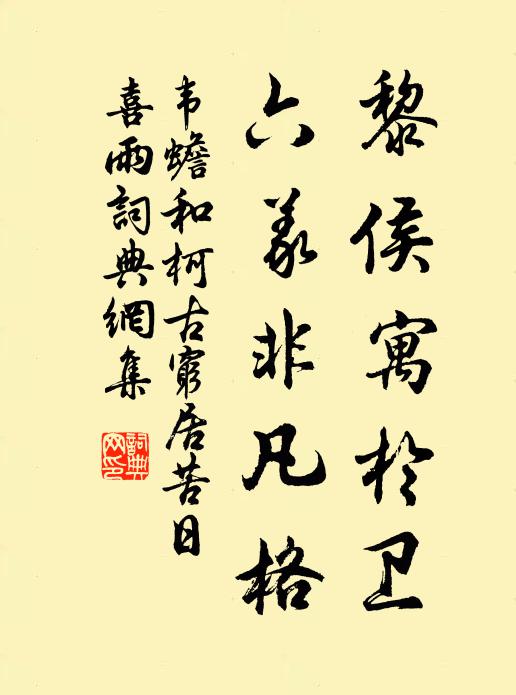 黎侯寓於卫
六义非凡格
韦蟾和柯古穷居苦日
喜雨詞典網集
詞典网印